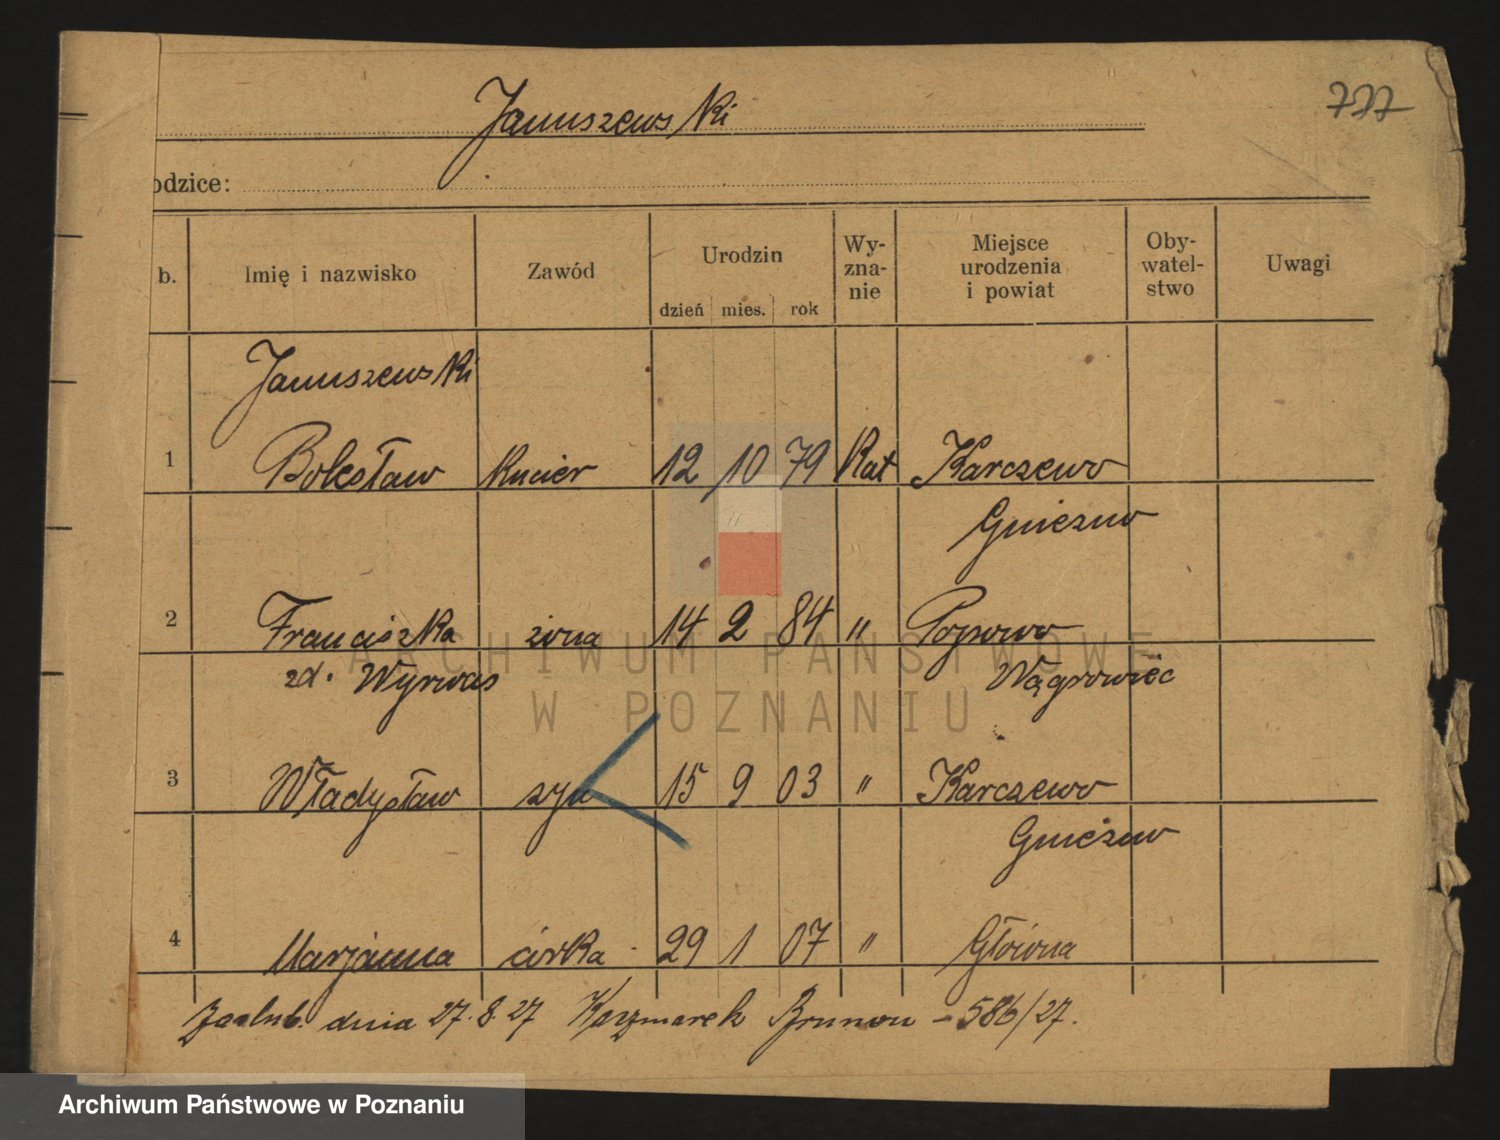 Januszewski
777
odzice:
b. Imię i nazwisko Zawód Urodzin Wy-zna-nie Miejsce urodzenia i powiat Oby-watel-stwo Uwagi
dzień mies. rok
Januszewski
1 Bolesław Kucier 12 10 79 Kat Karczewo
Gniezno
2 Franciszka żona 14 2 84 " Popowo
zd. Wyrwas Wągrowiec
3 Władysław syn 15 9 03 " Karczewo
Gniezno
4 Marjanna córka 29 1 07 " Główna
Zaślub. dnia 27.8.27 Kaczmarek Brunon – 586/27.
ARCHIWUM PAŃSTWOWE
W POZNANIU
Archiwum Państwowe w Poznaniu